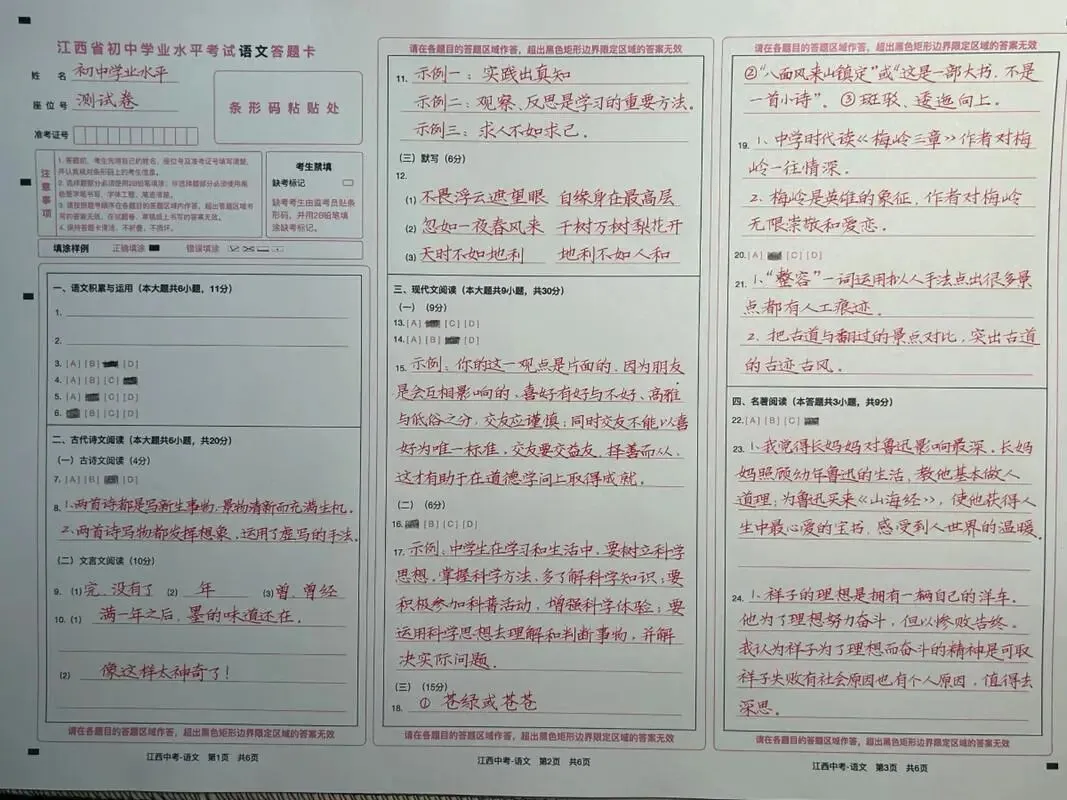 江西省初中学业水平考试语文答题卡
姓 名 初中学业水平
座位号 测试卷
准考证号
条形码粘贴处
注意事项
1. 答题前，考生先将自己的姓名、座位号及准考证号填写清楚，
并认真核对条形码上的考生信息。
2. 选择题部分必须使用2B铅笔填涂；非选择题部分必须使用黑
色签字笔书写，字体工整，笔迹清楚。
3. 请按照题号顺序在各题目的答题区域内作答，超出答题区域书
写的答案无效，在试题卷、草稿纸上书写的答案无效。
4. 保持答题卡清洁，不折叠，不损坏。
考生禁填
缺考标记
缺考考生由监考员贴条
形码，并用2B铅笔填
涂缺考标记。
填涂样例 正确填涂 错误填涂
一、语文积累与运用（本大题共6小题，11分）
1.
2.
3. [A] [B] [D]
4. [A] [B] [C]
5. [A] [C] [D]
6. [B] [C] [D]
二、古代诗文阅读（本大题共6小题，共20分）
（一）古诗文阅读（4分）
7. [A] [B] [D]
8. 1.两首诗都是写新生事物，景物清新而充满生机。
2.两首诗写物都发挥想象，运用了虚写的手法。
（二）文言文阅读（10分）
9. (1)完，没有了 (2) 年 (3)曾，曾经
10. (1) 满一年之后，墨的味道还在。
(2) 像这样太神奇了！
请在各题目的答题区域作答，超出黑色矩形边界限定区域的答案无效
江西中考-语文 第1页 共6页
请在各题目的答题区域作答，超出黑色矩形边界限定区域的答案无效
11. 示例一：实践出真知
示例二：观察、反思是学习的重要方法。
示例三：求人不如求己。
（三）默写（6分）
12.
(1) 不畏浮云遮望眼 自缘身在最高层
(2) 忽如一夜春风来 千树万树梨花开
(3) 天时不如地利 地利不如人和
三、现代文阅读（本大题共9小题，共30分）
（一）（9分）
13. [A] [C] [D]
14. [A] [B] [D]
15. 示例：你的这一观点是片面的，因为朋友
是会互相影响的，喜好有好与不好、高雅
与低俗之分，交友应谨慎；同时交友不能以喜
好为唯一标准，交友要交益友，择善而从，
这才有助于在道德学问上取得成就。
（二）（6分）
16. [B] [C] [D]
17. 示例：中学生在学习和生活中，要树立科学
思想，掌握科学方法，多了解科学知识；要
积极参加科普活动，增强科学体验；要
运用科学思想去理解和判断事物，并解
决实际问题。
（三）（15分）
18. ① 苍绿或苍苍
请在各题目的答题区域作答，超出黑色矩形边界限定区域的答案无效
江西中考-语文 第2页 共6页
请在各题目的答题区域作答，超出黑色矩形边界限定区域的答案无效
②“八面风来山镇定”或“这是一部大书，不是
一首小诗”。③斑驳、逶迤向上。
19. 1、中学时代读《梅岭三章》作者对梅
岭一往情深。
2、梅岭是英雄的象征，作者对梅岭
无限崇敬和爱恋。
20. [A] [C] [D]
21. 1、“整容”一词运用拟人手法点出很多景
点都有人工痕迹。
2、把古道与翻过的景点对比，突出古道
的古迹古风。
四、名著阅读（本答题共3小题，共9分）
22. [A] [B] [C]
23. 1、我觉得长妈妈对鲁迅影响最深。长妈
妈照顾幼年鲁迅的生活，教他基本做人
道理；为鲁迅买来《山海经》，使他获得人
生中最心爱的宝书，感受到人世界的温暖。
24. 1、祥子的理想是拥有一辆自己的洋车。
他为了理想努力奋斗，但以惨败告终。
我认为祥子为了理想而奋斗的精神是可取
祥子失败有社会原因也有个人原因，值得去
深思。
请在各题目的答题区域作答，超出黑色矩形边界限定区域的答案无效
江西中考-语文 第3页 共6页